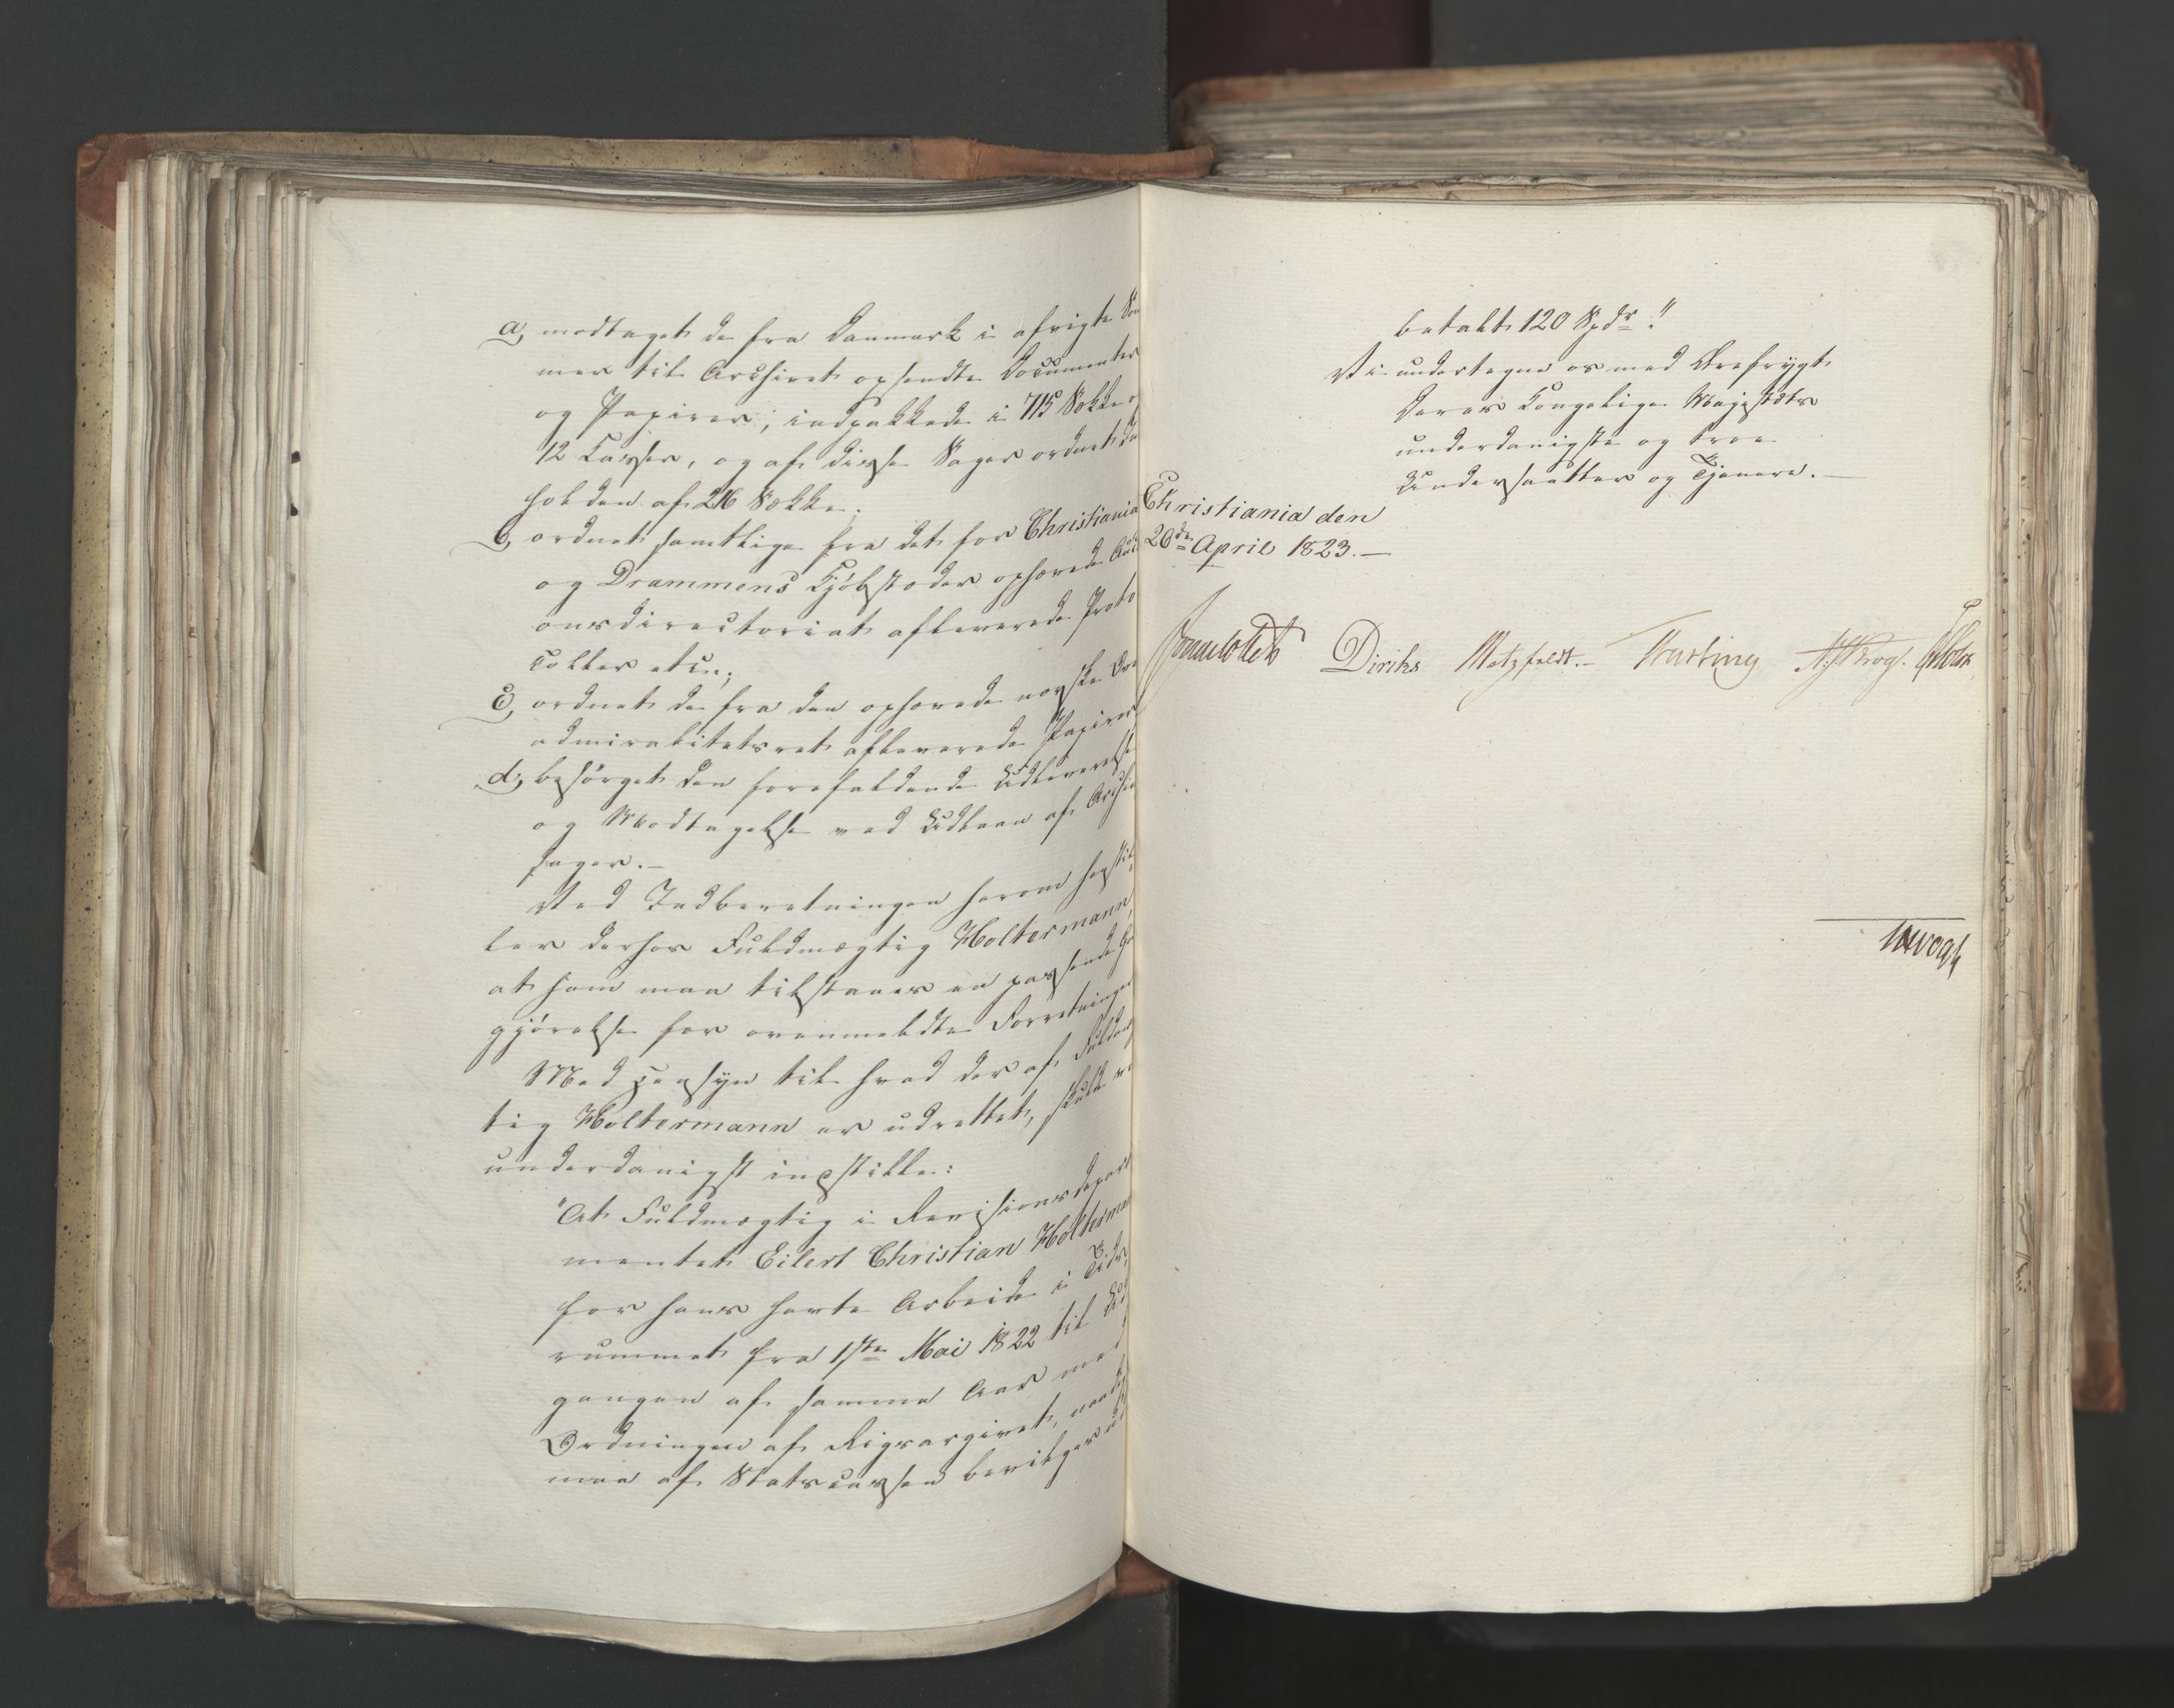 a, modtaget de fra Danmark i afvigte Som
mer til Archivet opsendte Documenter
og Papirer, indpakkede i 715 Pakker og
12 Kasser, og af disse Sager ordnet
holden af 216 Pakker.
b, ordnet samtlige fra det for Christiania
og Drammens Kjøbstæder ophævede Auc
onsdirectoriat afleverede Proto
coller etc.;
c, ordnet de fra den ophævede norske Over
admiralitetsret afleverede Papirer
d, besørget den forefaldende Udleverelse
og Modtagelse ved Udlaan af Archiv
sager.—
Ved Indberetningen herom hen
ler derhos Fuldmægtig Holtermann,
at ham maa tilstaaes en passende God
gjørelse for ovenmeldte Forretninger
Med Hensyn til hvad der af Fuldmæg
tig Holtermann er udrettet, skulle vi
underdanigst indstille:
"At Fuldmægtig i Revisionsdeparte
mentet Eilert Christian Holterman
for hans havte Arbeide i Tids
rummet fra 1ste Mai 1822 til Ud
gangen af samme Aar med
Ordningen af Rigsarchivet, naadigst
maa af Statscassen bevilges ud
betalt 120 Spdr."
Vi undertegne os med Ærefrygt
Deres Kongelige Majestæts
underdanigste og troe
Undersaatter og Tjenere.—
Christiania den
26de April 1823.—
Diriks Motzfeldt.— Krog.